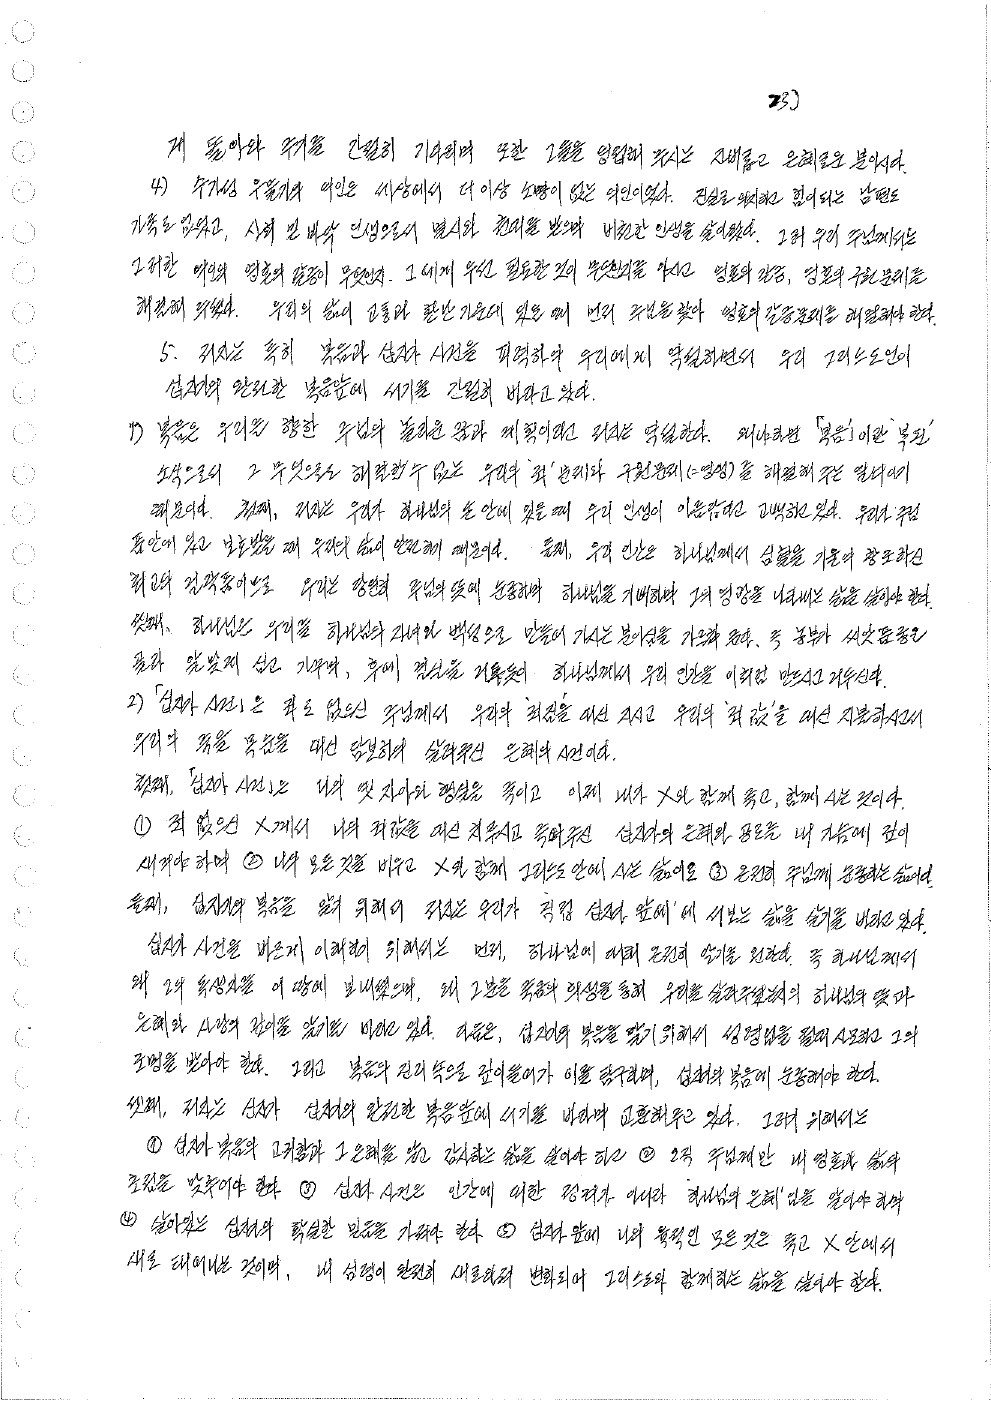 23)
게 돌아와 주기를 간절히 기다리며 또한 그들을 영접해 주시는 자비롭고 은혜로운 분이시다.
4) 수가성 우물가의 여인은 세상에서 더이상 소망이 없는 여인이었다. 진실로 의지하고 힘이되는 남편도
가족도 없었고, 사회 밑바닥 인생으로서 멸시와 천대를 받으며 비천한 인생을 살아왔다. 그러 우리 주님께서는
그러한 여인의 영혼의 갈증이 무엇인지. 그에게 우선 필요한 것이 무엇인지를 아시고 영혼의 갈증, 영혼의 구원문제를
해결해 주셨다. 우리의 삶이 고통과 환난 가운데 있을 때 먼저 주님을 찾아 영혼의 갈증문제를 해결해야 한다.
5. 저자는 특히 복음과 십자가 사건을 피력하여 우리에게 역설하면서 우리 그리스도인이
십자가의 완전한 복음앞에 서기를 간절히 바라고 있다.
1) 복음은 우리를 향한 주님의 놀라운 꿈과 계획이라고 저자는 역설한다. 왜냐하면 「복음」이란 '복된'
소식으로서 그 무엇으로도 해결할수 없는 우리의 '죄' 문제와 구원문제(=영생)를 해결해 주는 열쇠이기
때문이다. 첫째, 저자는 우리가 하나님의 손안에 있을 때 우리 인생이 아름답다고 고백하고 있다. 우리가 주님
품안에 있고 보호받을 때 우리의 삶이 안전하기 때문이다. 둘째, 우리 인간은 하나님께서 심혈을 기울여 창조하신
최고의 걸작품이므로 우리는 당연히 주님의 뜻에 순종하며 하나님을 기뻐하며 그의 영광을 나타내는 삶을 살아야 한다.
셋째, 하나님은 우리를 하나님의 자녀와 백성으로 만들어 가시는 분이심을 가르쳐 준다. 즉 농부가 씨앗품종을
골라 알맞게 심고 가꾸며, 후에 결실을 거두듯이 하나님께서 우리 인간을 이처럼 만드시고 거두신다.
2) 「십자가 사건」은 죄도 없으신 주님께서 우리의 '죄짐'을 대신 지시고 우리의 '죄 값'을 대신 지불하시고서
우리의 죽을 목숨을 대신 담보하여 살려주신 은혜의 사건이다.
첫째, 「십자가 사건」은 나의 옛 자아와 행실을 죽이고 이제 내가 X와 함께 죽고, 함께 사는 것이다.
① 죄 없으신 X께서 나의 죄값을 대신 치루시고 죽어주신 십자가의 은혜와 공로를 내 가슴에 깊이
새겨야 하며 ② 나의 모든 것을 비우고 X와 함께 그리스도 안에 사는 삶이요 ③ 온전히 주님께 순종하는 삶이다.
둘째, 십자가의 복음을 알기 위해서 저자는 우리가 '직접 십자가 앞에'에 서보는 삶을 살기를 바라고 있다.
십자가 사건을 바르게 이해하기 위해서는 먼저, 하나님에 대해 온전히 알기를 원한다. 즉 하나님께서
왜 그의 독생자를 이 땅에 보내셨으며, 왜 그분을 죽음의 희생을 통해 우리를 살려주셨는지의 하나님의 뜻과
은혜와 사랑의 깊이를 알기를 바라고 있다. 다음은, 십자가의 복음을 알기위해서 성령님을 필히 사모하고 그의
조명을 받아야 한다. 그리고 복음의 진리속으로 깊이들어가 이를 탐구하며, 십자가의 복음에 순종해야 한다.
셋째, 저자는 십자가 십자가의 완전한 복음앞에 서기를 바라며 교훈해주고 있다. 그러기 위해서는
① 십자가 복음의 고귀함과 그 은혜를 알고 감사하는 삶을 살아야 하고 ② 오직 주님께만 내 영혼과 삶의
초점을 맞추어야 한다 ③ 십자가 사건은 인간에 대한 정죄가 아니라 '하나님의 은혜'임을 알아야 하며
④ 살아있는 십자가의 확실한 믿음을 가져야 한다 ⑤ 십자가 앞에 나의 육적인 모든 것은 죽고 X 안에서
새로 태어나는 것이며, 내 심령이 완전히 새로워져 변화되어 그리스도와 함께하는 삶을 살아야 한다.